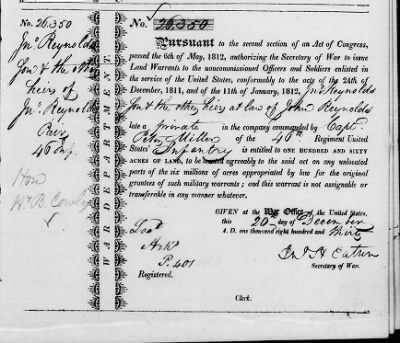 No. 26.350
Jnº. Reynolds
Son & the other
heirs of
Jnº. Reynolds
46 Inf
Hon
WAR DEPARTMENT.
No. 26.350
Pursuant to the second section of an Act of Congress,
passed the 6th of May, 1812, authorizing the Secretary of War to issue
Land Warrants to the noncommissioned Officers and Soldiers enlisted in
the service of the United States, conformably to the acts of the 24th of
December, 1811, and of the 11th of January, 1812, Jnº Reynolds
Son & the other heirs at law of John Reynolds
late a private in the company commanded by Capt.
Miller of the 46th Regiment United
States' Infantry is entitled to ONE HUNDRED AND SIXTY
ACRES OF LAND, to be located agreeably to the said act on any unlocated
parts of the six millions of acres appropriated by law for the original
grantees of such military warrants; and this warrant is not assignable or
transferable in any manner whatever.
GIVEN at the War Office of the United States,
this 20th day of December
A. D. one thousand eight hundred and thirty
Jnº H Eaton
Secretary of War.
Ark.
P. 401
Registered.
Clerk.